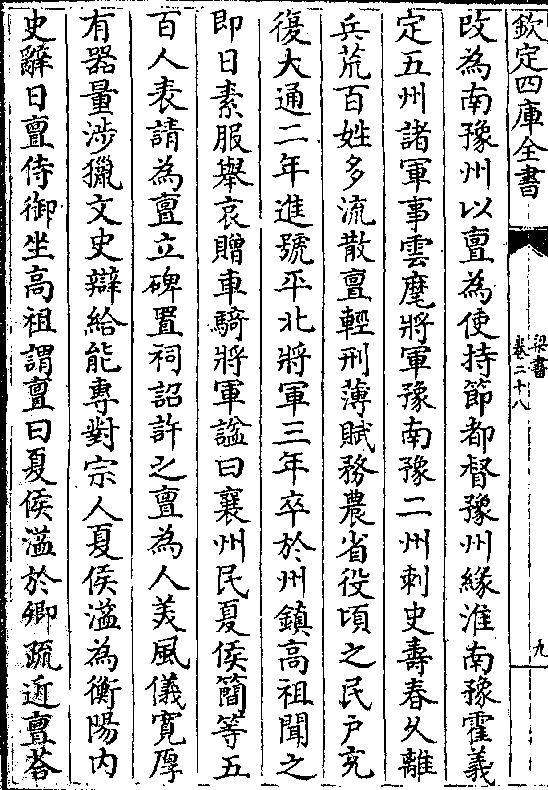 欽定四庫全書
梁書
卷二十八
九
改為南豫州以亶為使持節都督豫州緣淮南豫霍義
定五州諸軍事雲麾將軍豫南豫二州刺史壽春久離
兵荒百姓多流散亶輕刑薄賦務農省役頃之民戶充
復大通二年進號平北將軍三年卒於州鎮高祖聞之
即日素服舉哀贈車騎將軍諡曰襄州民夏侯簡等五
百人表請為亶立碑置祠詔許之亶為人美風儀寬厚
有器量涉獵文史辯給能專對宗人夏侯溢為衡陽內
史辭日亶侍御坐高祖謂亶曰夏侯溢於卿疏近亶荅